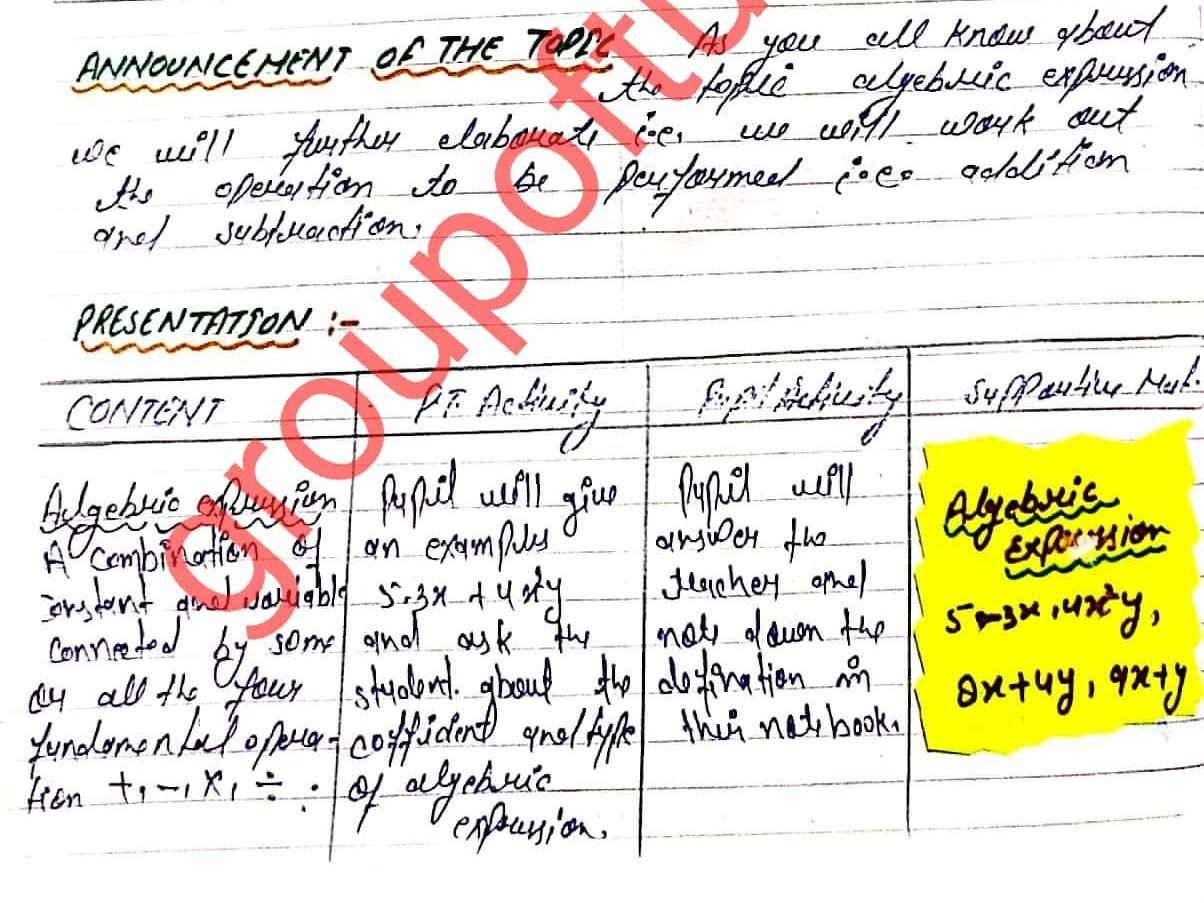 ANNOUNCEMENT OF THE TOPIC As you all know about
the topic algebric expression
we will further elaborate i.e. we will work out
the operation to be performed i.e. addition
and subtraction.
PRESENTATION :-
CONTENT
Algebric expression
A combination of
constant and variable
connected by some
or all the four
fundamental opera-
tion +, -, x, ÷ .
P.T. Activity
Pupil will give
an examples
5-3x + 4x²y
and ask the
student about the
cofficient and type
of algebric
expression.
Pupil Activity
Pupil will
answer the
teacher and
note down the
defination in
their notebook.
Supportive Mat.
Algebric
Expression
5-3x, 4x²y,
8x+4y, 9x+y
groupoftu